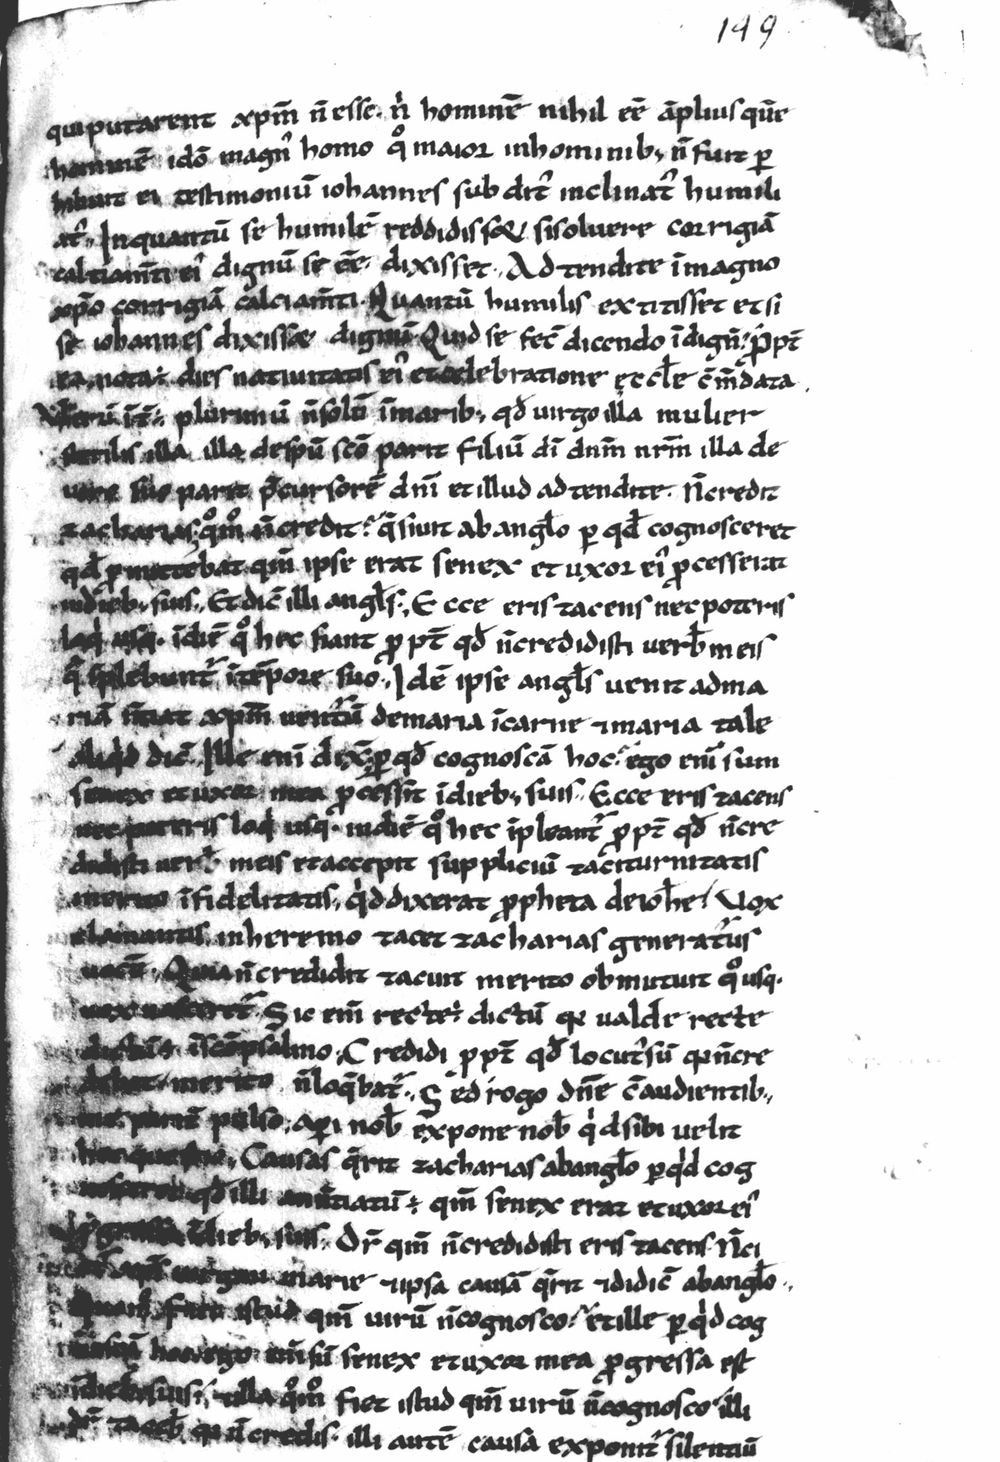 149
qui putarent xp̄m n̄ esse. n̓ hominē nihil eē āplius quē
hominē idō magn̓ homo q̊ maior in hominib; n̄ fuit p
hibuit ei testimoniū iohannes subdit̓ inclinat̓ humili
at̓. Inquantū se humilē reddidisset si soluere corrigiā
calciam̄ti ei̓ dignū se eē. dixisset. Adtendite ī magno
xp̄o corrigiā calciam̄ti. Quantū humilis extitisset et si
se iohannes dixisse dignū. Quid se fec̄ dicendo īdign̄. ꝓpt̄
ea nota dies natiuitatis ei̓ et celebratione ęccłe cm̄data.
plurimū n̄ solū ī marib; qđ uirgo illa mulier
sterilis illa illa de sp̄u sc̄o parit filiū dī dn̄m nr̄m illa de
uiro suo parit p̄cursorē dn̄i et illud adtendite. n̄ credit
zacharias q̊m̊ n̄ credit. q̄siuit ab angło p qđ cognosceret
qđ ꝓmittebat qm̄ ipse erat senex et uxor ei̓ ꝓcesserat
in dieb; suis. Et dic̄ illi angłs. Ecce eris tacens nec poteris
loqi usq. ī diē q̊ hec fiant ꝓpt̄ qđ n̄ credidisti uerƀ meis
q̄ īplebunt̓ ī tēpore suo. Idē ipse angłs uenit ad ma
riā n̄tiat xp̄m uentur̄ū de maria ī carne ⁊ maria tale
aliqid dic̄. Ille eni dix̄. p qđ cognoscā hoc. ego eni̓ sum
senex et uxor mea ꝓcessit ī dieb; suis. Ecce eris tacens
nec poteris loqi usq. in diē q̊ hec īpleant̓ ꝓpt̄ qđ n̄ cre
didisti uerƀ meis et accepit suppliciū taciturnitatis
merito īfidelitatis. qid dixerat ꝓpheta de iohe. Vox
clamantis in heremo tacet zacharias generat̓us
uocē. Quia n̄ credidit tacuit merito obmutuit q̊usq.
uox nasceret̓. Sic eni recte dictū q valde recte
dictū ī sc̄o psalmo. Credidi ꝓpt̄ qđ locut̓ sū q n̄ cre
debat merito n̄ loq̄bat̓. Sed rogo dn̄e c̄ audientib;
me parit̄ pulso. api noƀ expone noƀ qid sibi uelit
hec questio. Causas q̄rit zacharias ab angło p qid cog
nosceret qđ illi annūtiatū qm̄ senex erat et uxor ei̓
ꝓgressa ī dieb; suis. Dr̄ qm̄ n̄ credidisti eris tacens. n̄ci
marie ⁊ ipsa causā q̄rit ⁊ didic̄ ab angło.
Quom̊ fiet istud qm̄ uirū n̄ cognosco. et ille p qid cog
noscā hoc ego eni sū senex et uxor mea ꝓgressa est
ī dieb; suis. illa q̊m̊ fiet istud qm̄ uirū n̄ cognosco illi
dr̄ taceƀ q n̄ credis. illi autē causa exponit̓ silentiū